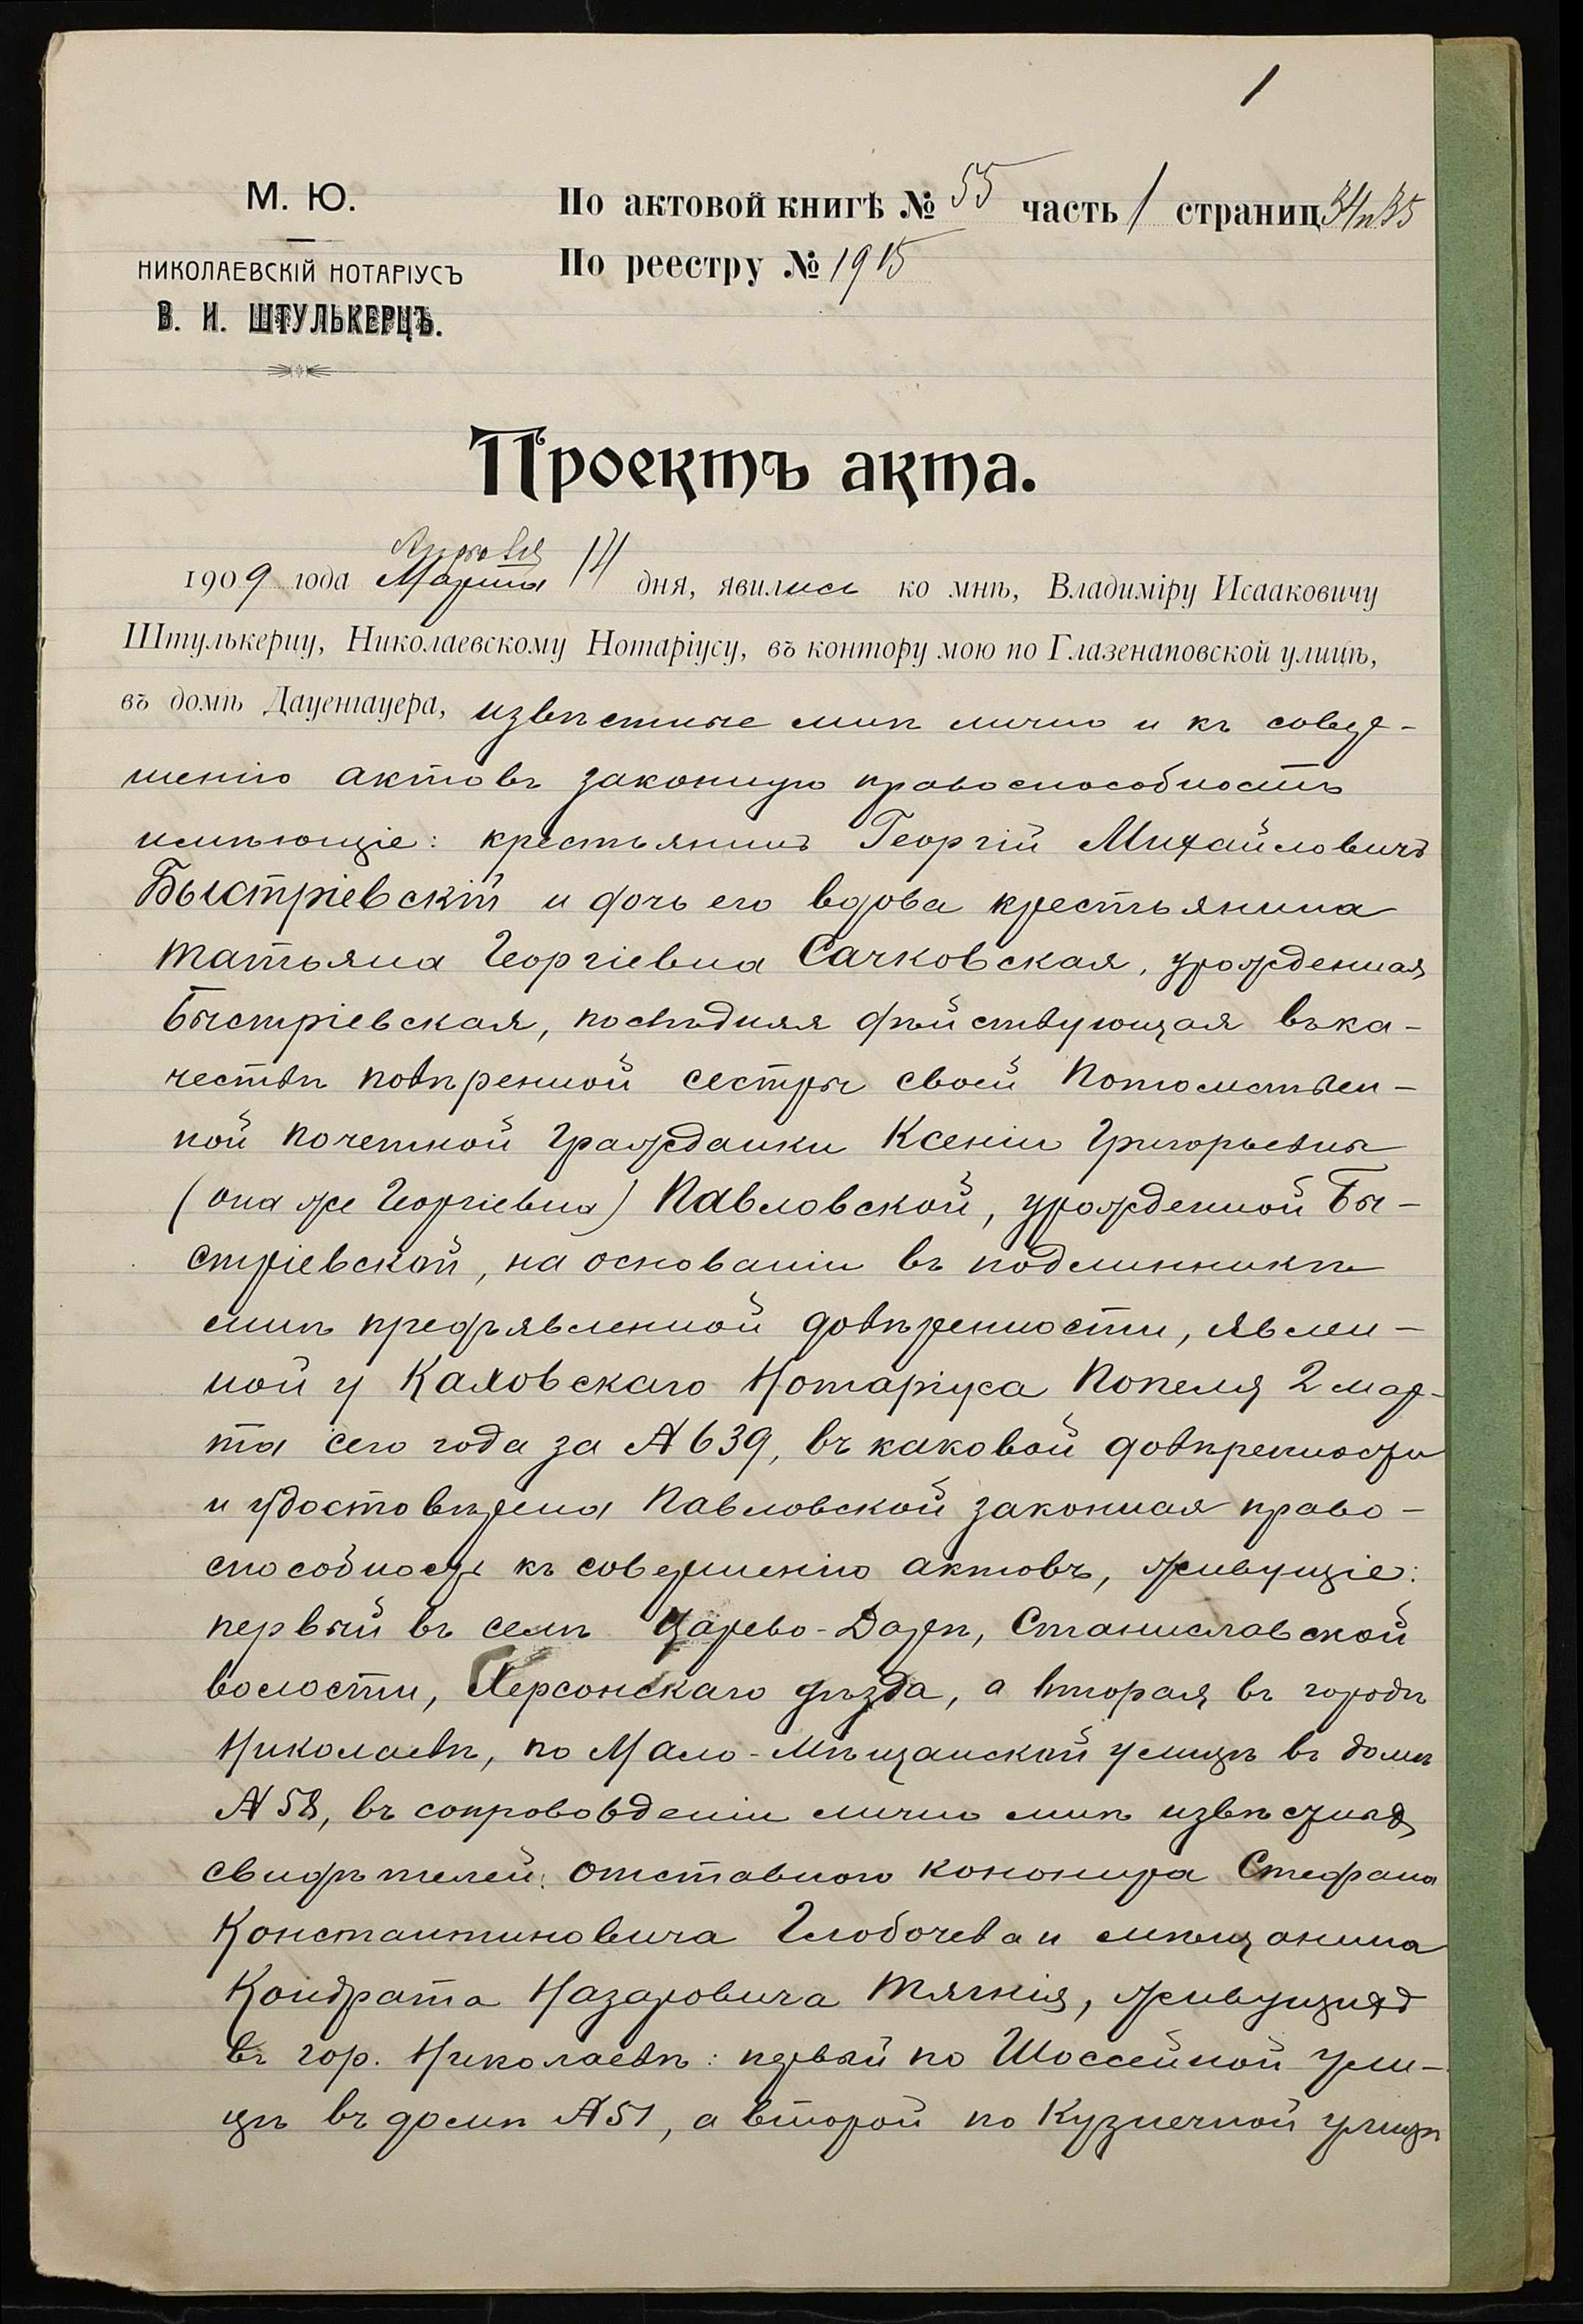 1
М. Ю.
НИКОЛАЕВСКІЙ НОТАРІУСЪ
В. И. ШТУЛЬКЕРЦЪ.
По актовой книгѣ № 55 часть 1 страниц 34 и 35
По реестру № 1915
Проектъ акта.
Апрѣля
1909 года Марта 14 дня, явились ко мнѣ, Владиміру Исааковичу
Штулькерцу, Николаевскому Нотаріусу, въ контору мою по Глазенаповской улицѣ,
въ домѣ Дауенгауера, извѣстные мнѣ лично и къ совер-
шенію актовъ законную правоспособность
имѣющіе: крестьянинъ Георгій Михайловичъ
Быстріевскій и дочь его вдова крестьянина
Татьяна Георгіевна Сачковская, урожденная
Быстріевская, послѣдняя дѣйствующая въ ка-
чествѣ повѣренной сестры своей Потомствен-
ной почетной Гражданки Ксеніи Григорьевны
(она же Георгіевна) Павловской, урожденной Бы-
стріевской, на основаніи въ подлинникѣ
мнѣ предъявленной довѣренности, явлен-
ной у Каховскаго Нотаріуса Попеля 2 мар-
та сего года за № 639, въ каковой довѣренности
и удостовѣрена Павловской законная право-
способность къ совершенію актовъ, живущіе:
первый въ селѣ Царево-Дарѣ, Станиславской
волости, Херсонскаго уѣзда, а вторая въ городѣ
Николаевѣ, по Мало-Мѣщанской улицѣ въ домѣ
№ 58, въ сопровожденіи лично мнѣ извѣстныхъ
свидѣтелей: отставного канонира Стефана
Константиновича Глобочева и мѣщанина
Кондрата Назаровича Тягнія, живущихъ
въ гор. Николаевѣ: первый по Шоссейной ули-
цѣ въ домѣ № 51, а второй по Кузнечной улицѣ